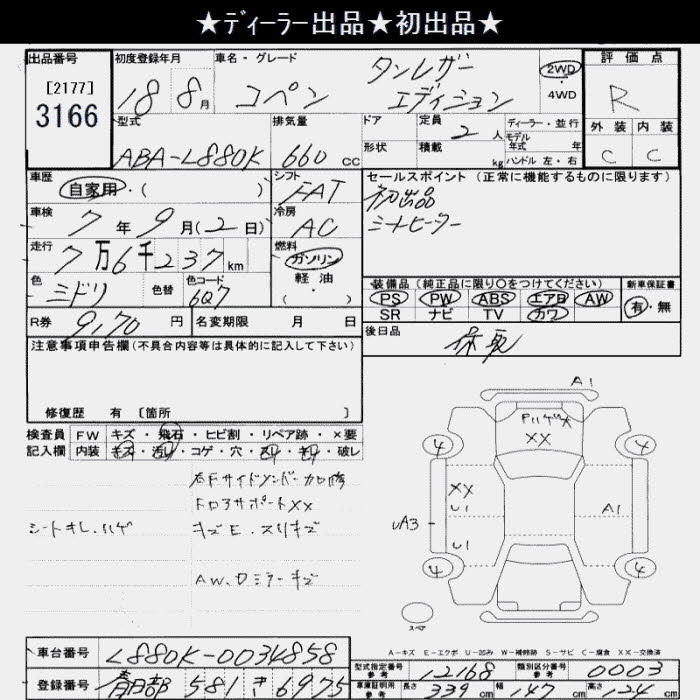 ★ディーラー出品★初出品★
出品番号 初度登録年月 車名・グレード 評価点
[2177]
3166
18 8月 コペン タンレザーエディション 2WD・4WD R
型式 排気量 ドア 定員 2人 ディーラー・並行 外装 内装
モデル年式 年
ABA-L880K 660cc 形状 積載 kg ハンドル 左・右 C C
車歴 シフト セールスポイント (正常に機能するものに限ります)
自家用・( ) FAT 初出品
車検 7年9月(2日) 冷房 AC シートヒーター
走行 7万6千237km 燃料 ガソリン・軽油・( )
色 ミドリ 色替 色コード 6Q7
装備品 (純正品に限り○をつけてください) 新車保証書
PS PW ABS エアB AW 有・無
SR ナビ TV カワ
R券 9,170円 名変期限 月 日 後日品
注意事項申告欄(不具合内容等は具体的に記入して下さい)
修復歴 有 [箇所 ]
検査員記入欄 FW キズ・飛石・ヒビ割・リペア跡・×要
内装 キズ・汚れ・コゲ・穴・スレ・キレ・破レ
右Fサイドメンバー
ドロアサポートXX
シートキレ、ハゲ キズE、スリキズ
AW、Dミラーキズ
A1
XX
4 4
XX
U1 A1
UA3
U1
4 4
スペア
A-キズ E-エクボ U-凹み W-補修跡 S-サビ C-腐食 XX-交換済
車台番号 L880K-0034858 型式指定番号 参考 12168 類別区分番号 参考 0003
登録番号 春日部 581 き 6975 車庫証明用 参考 長さ 339cm 幅 147cm 高さ 124cm